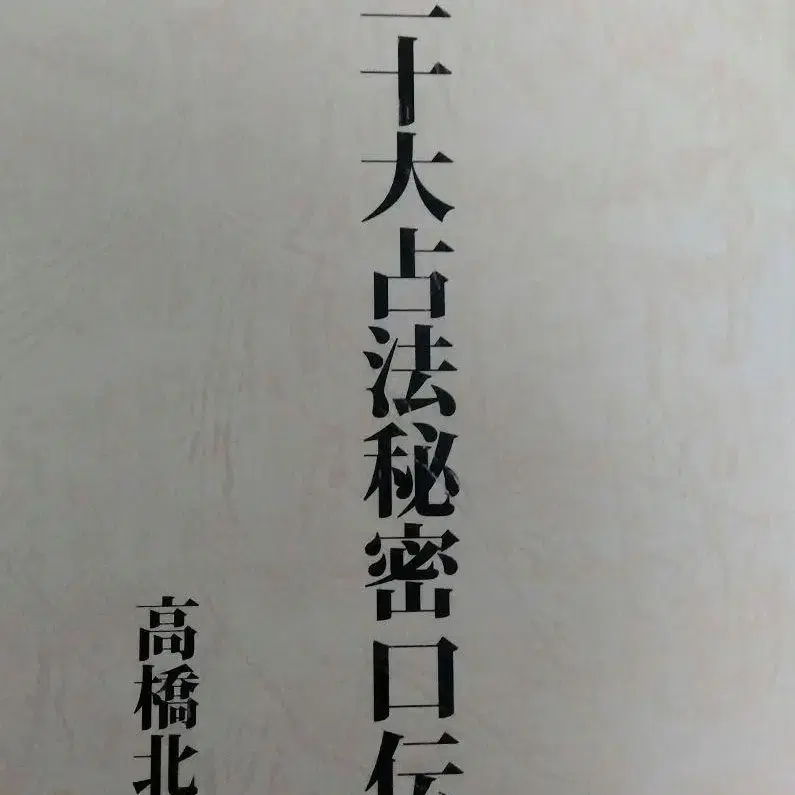 十大占法秘密口伝
高橋北